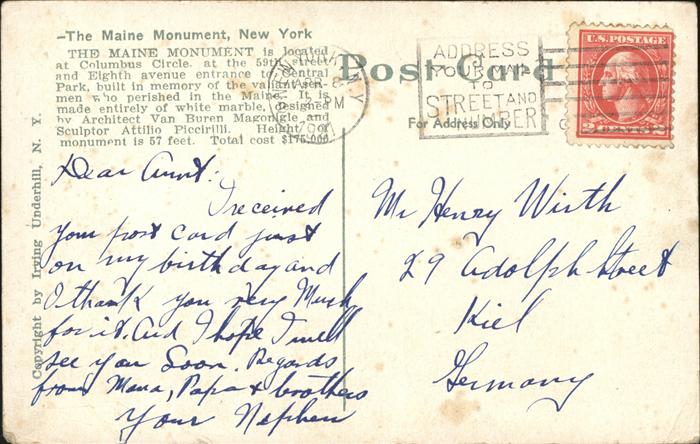 —The Maine Monument, New York
THE MAINE MONUMENT is located
at Columbus Circle, at the 59th street
and Eighth avenue entrance to Central
Park, built in memory of the valiant sea-
men who perished in the Maine. It is
made entirely of white marble, designed
by Architect Van Buren Magonigle and
Sculptor Attilio Piccirilli. Height of
monument is 57 feet. Total cost $175,000
Copyright by Irving Underhill, N. Y.
Dear Aunt:
I received
your post card just
on my birthday and
I thank you very Much
for it. And I hope I will
see you Soon. Regards
from Mama, Papa & brothers
Your Nephew
Post Card
For Address Only
ADDRESS
YOUR MAIL
TO
STREET AND
NUMBER
N. Y.
APR
PM
U.S. POSTAGE
2 CENTS 2
Mr Henry Wirth
29 Adolph Street
Kiel
Germany